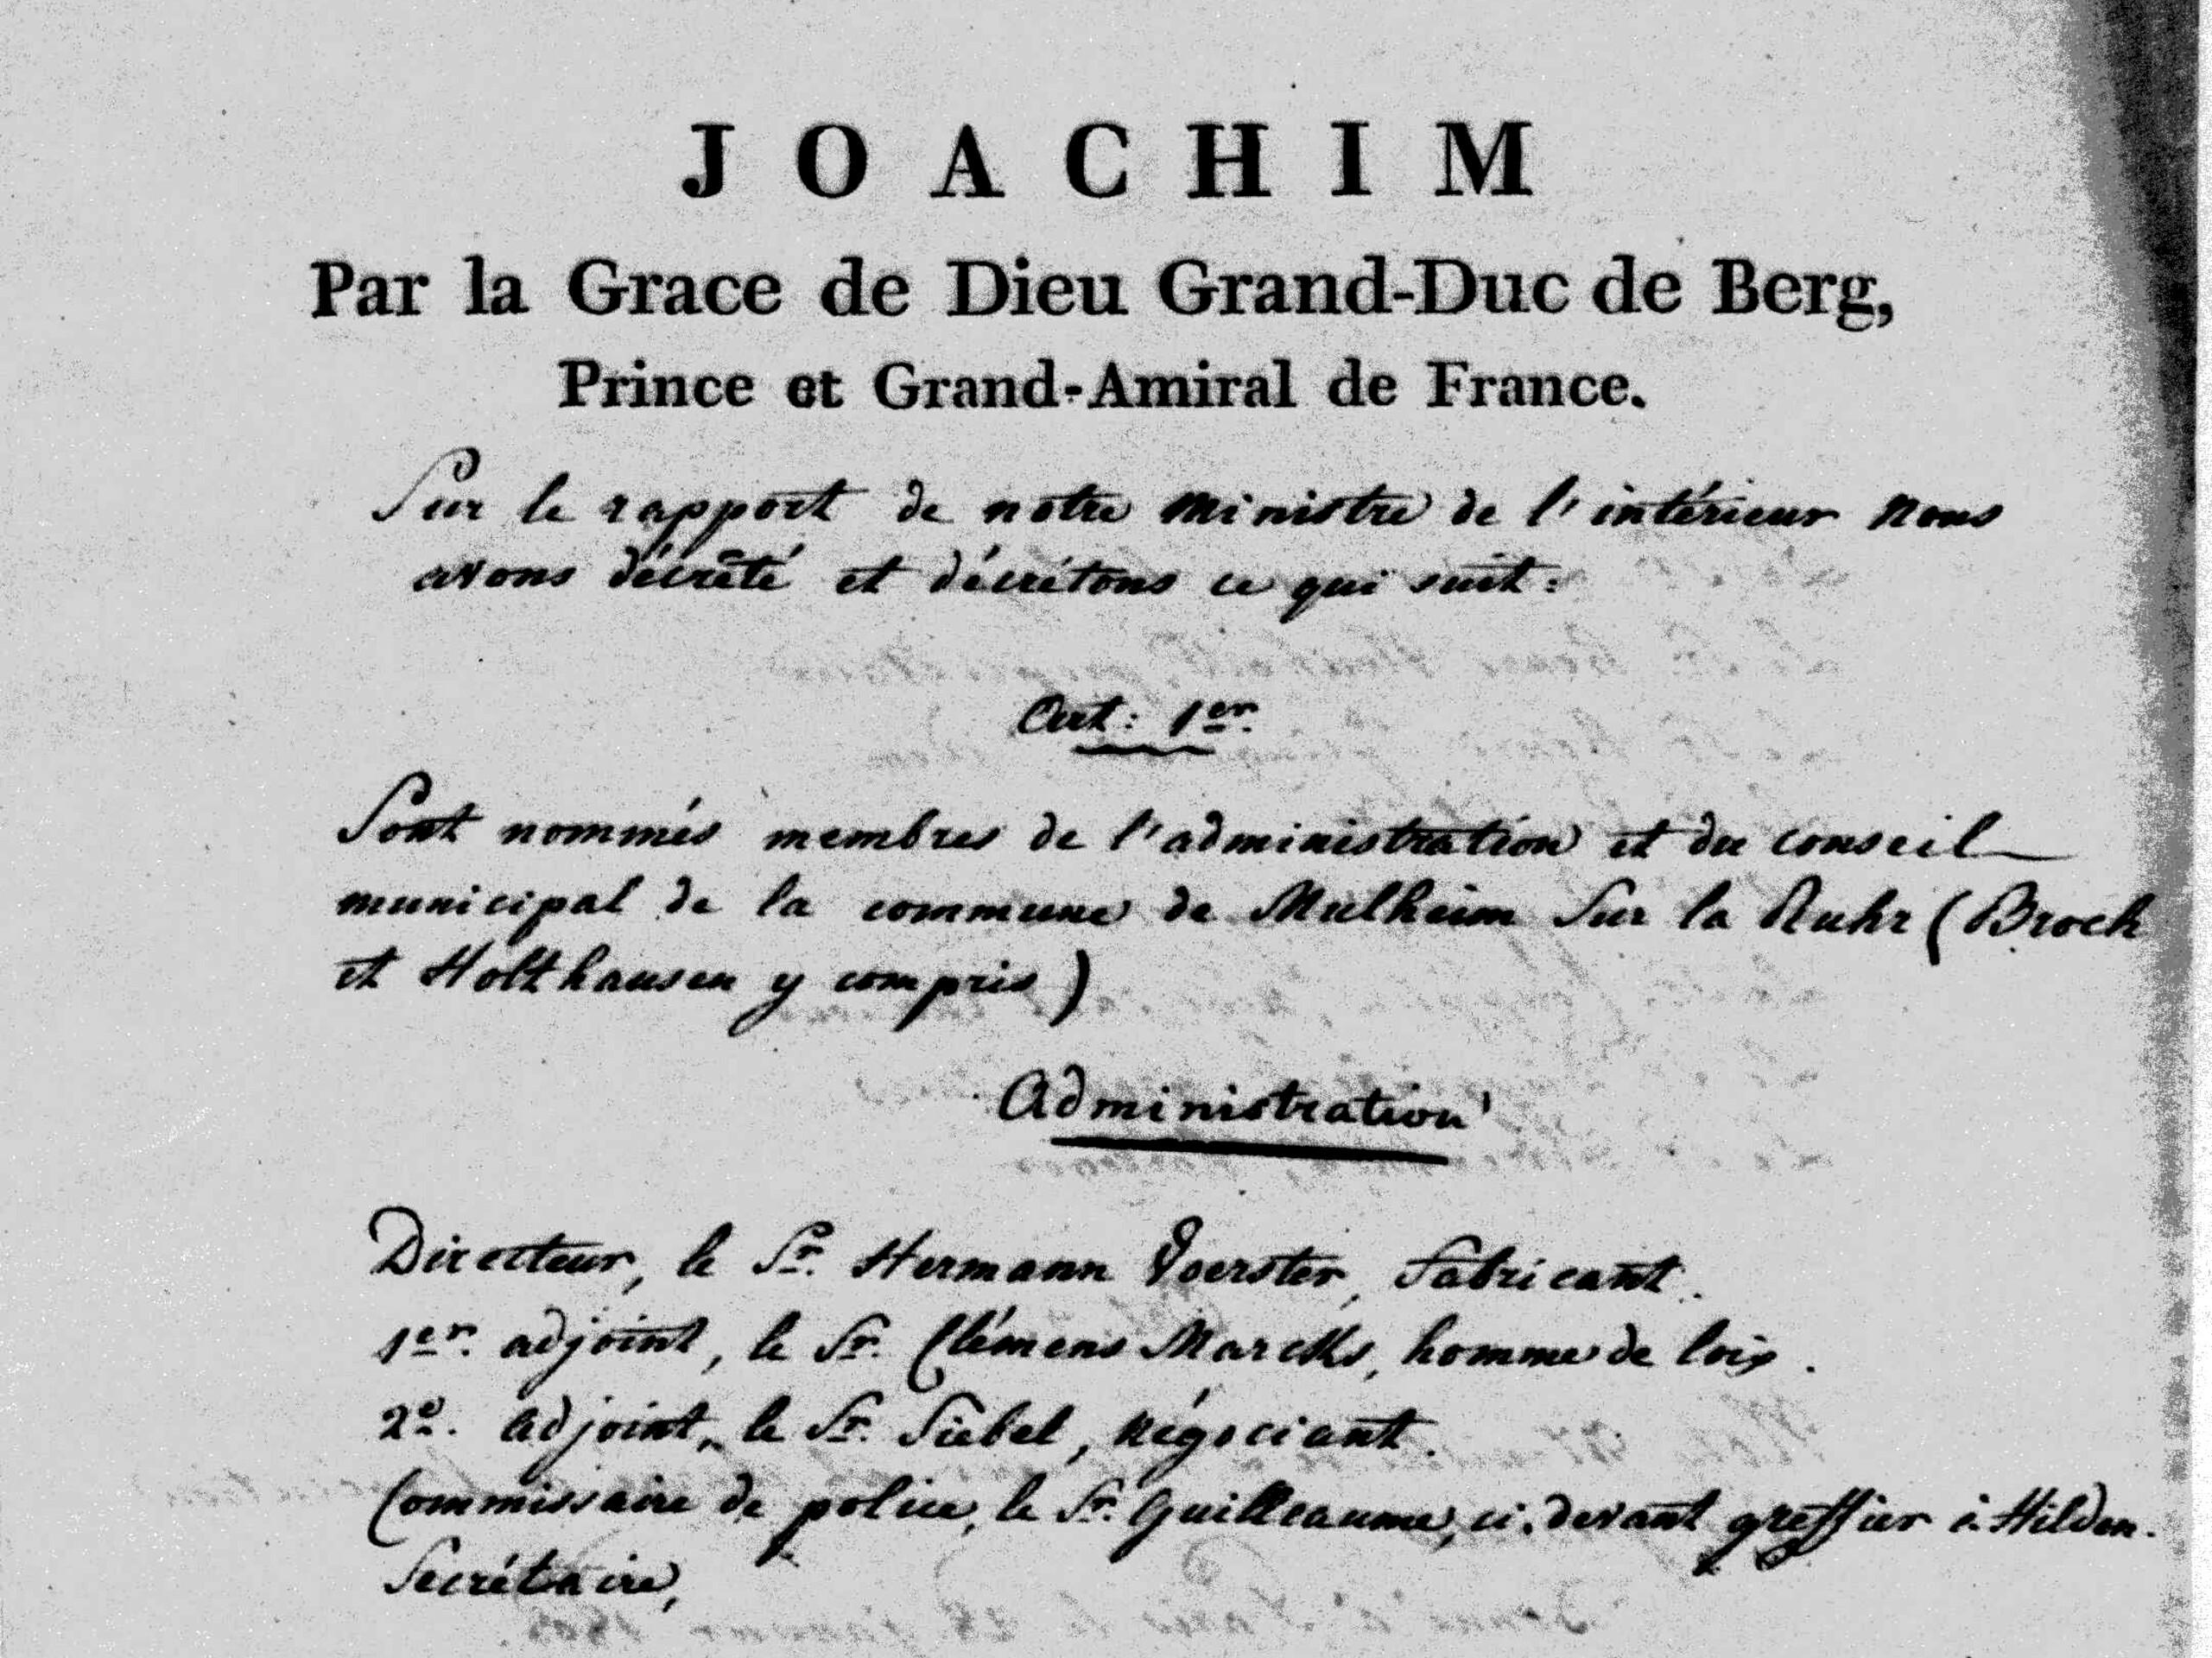 JOACHIM
Par la Grace de Dieu Grand-Duc de Berg,
Prince et Grand-Amiral de France.
Sur le rapport de notre Ministre de l'intérieur Nous
avons décrété et décrétons ce qui suit:
Art: 1er.
Sont nommés membres de l'administration et du conseil
municipal de la commune de Mulheim sur la Ruhr (Broch
et Holthausen y compris)
Administration
Directeur, le Sr. Hermann Voerster, fabricant.
1er. adjoint, le Sr. Clémens Marcks, homme de loix.
2e. adjoint, le Sr. Siebel, Négociant.
Commissaire de police, le Sr. Guilleaume, ci-devant greffier à Hilden.
Secrétaire,